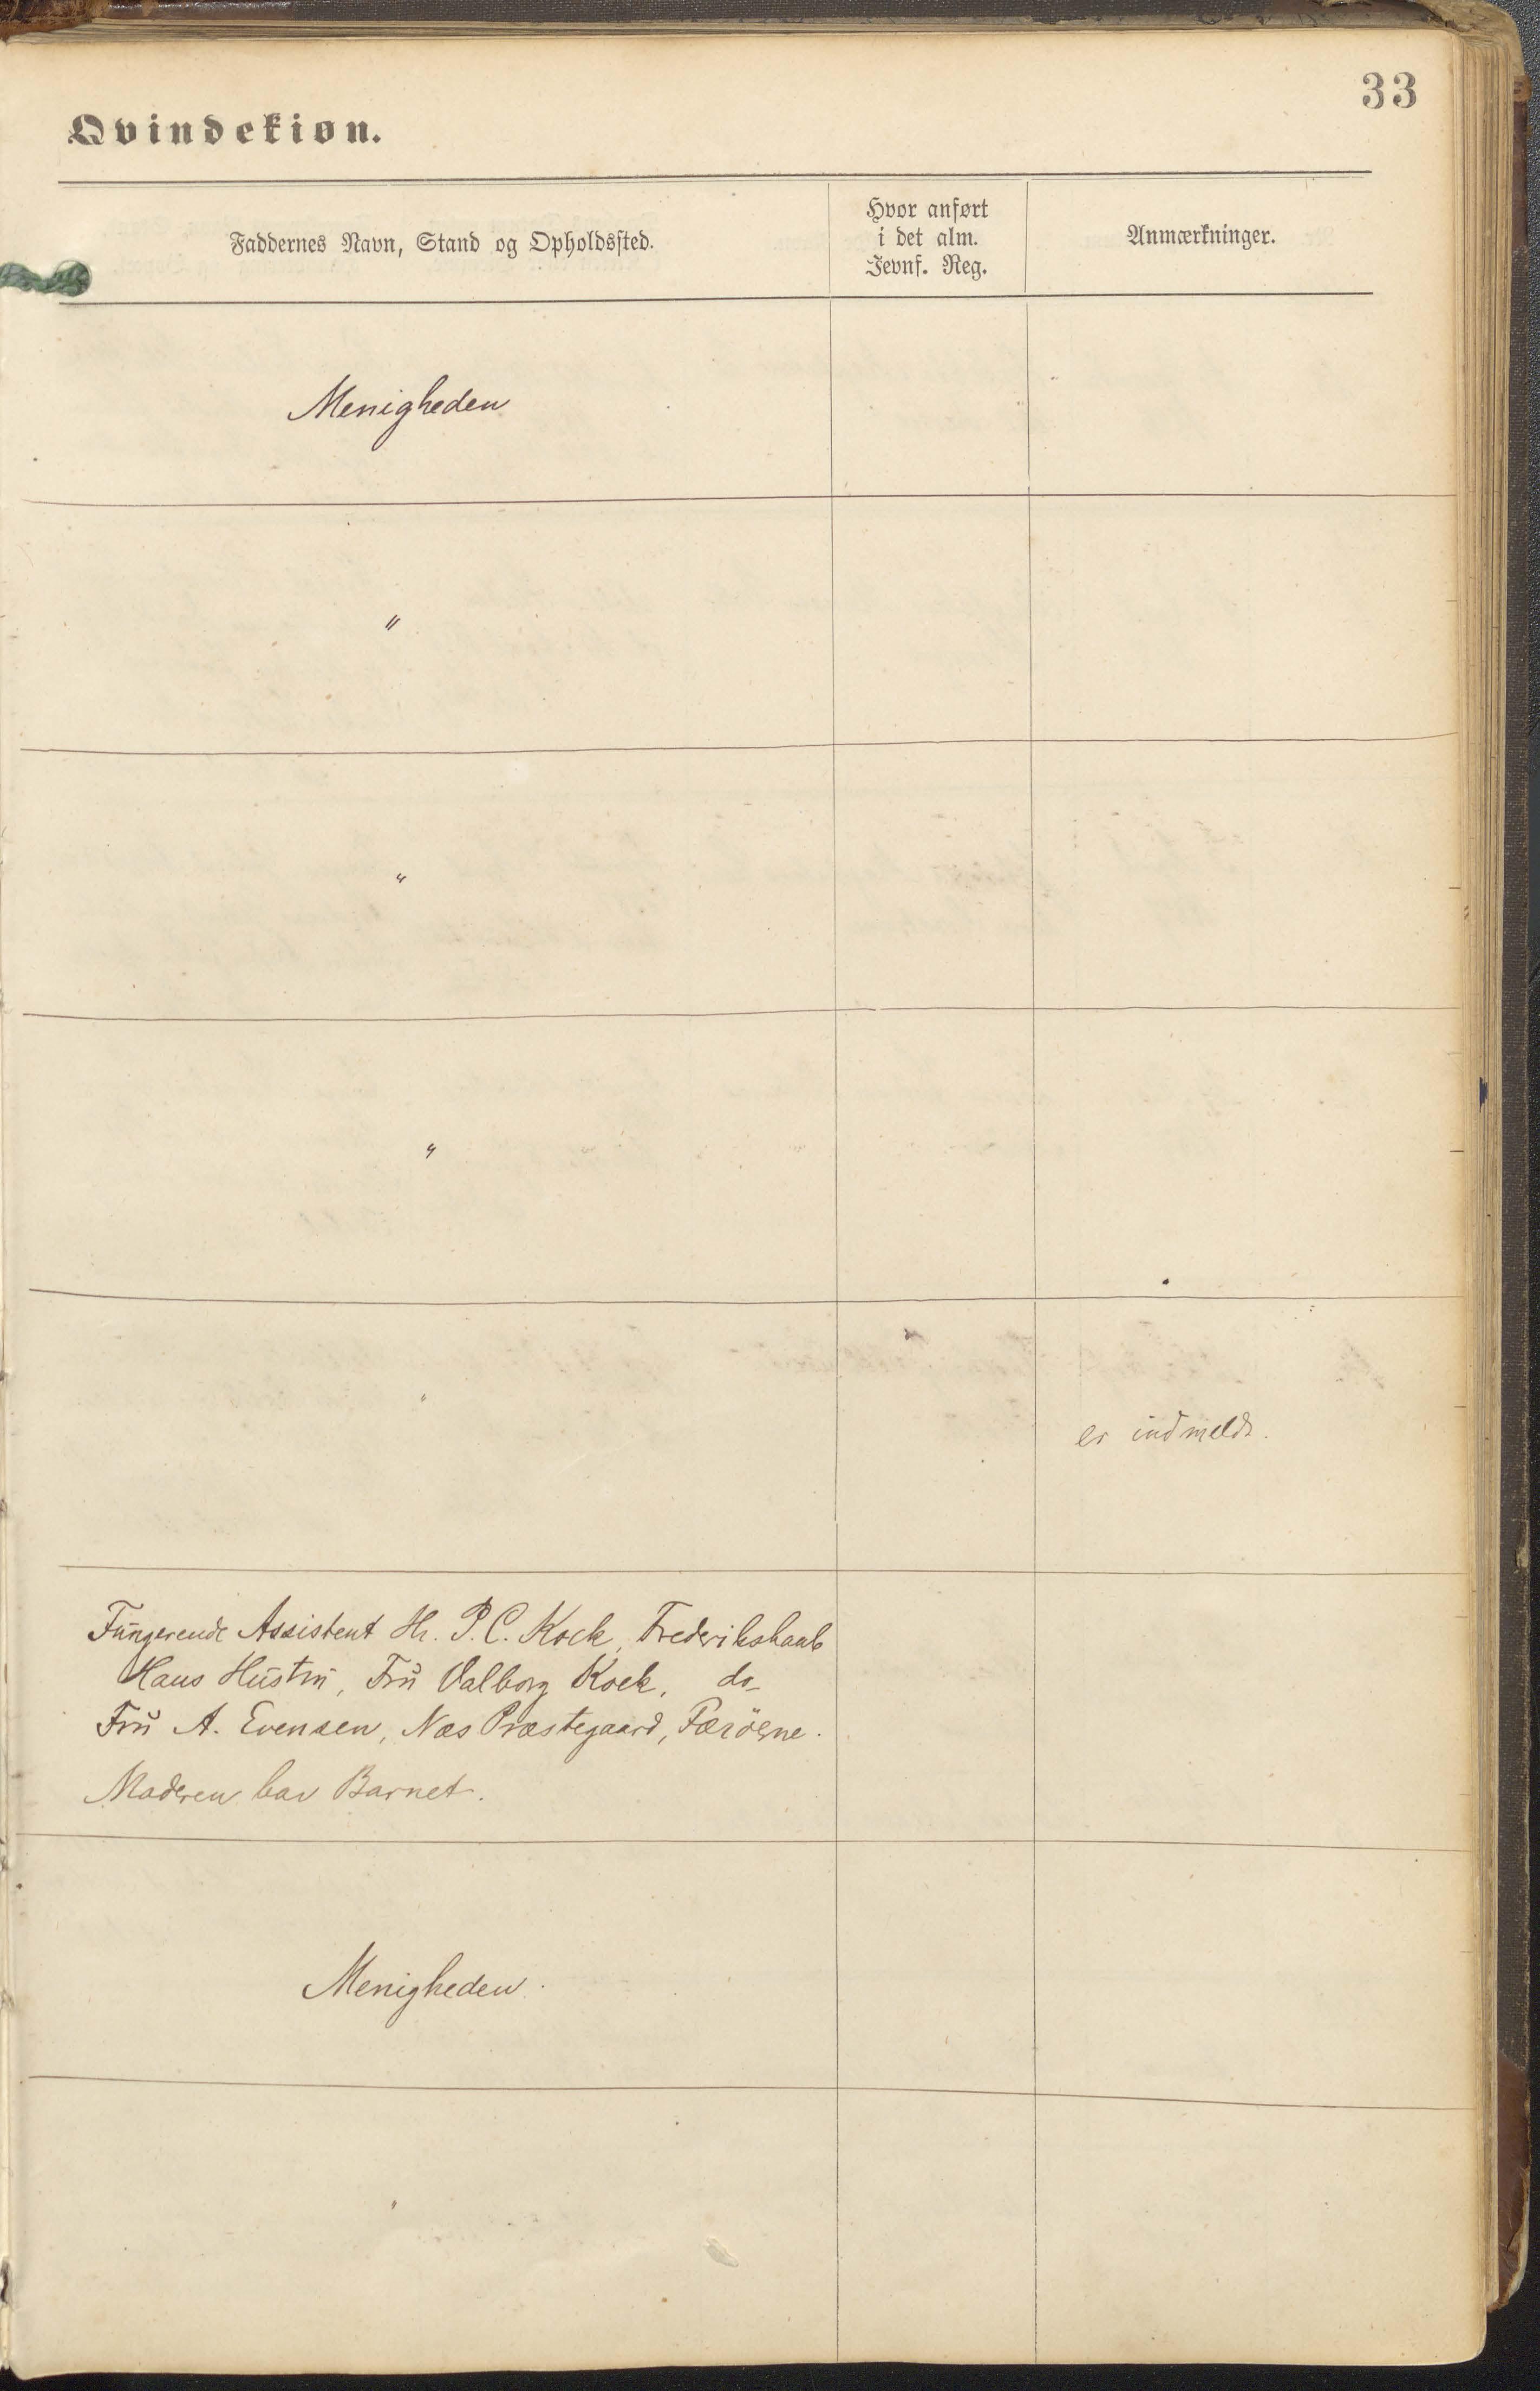 33
Qvindekiøn.
Faddernes Navn, Stand og Opholdssted.
Hvor anført
i det alm.
Jevnf. Reg.
Anmærkninger.
Menigheden
"
"
"
"
er indmeldt.
Fungerende Assistent Hr. P. C. Kock, Frederikshaab
Hans Hustru, Fru Valborg Kock, do_
Fru A. Evensen, Næs Præstegaard, Færöerne.
Moderen bar Barnet.
Menigheden.
"